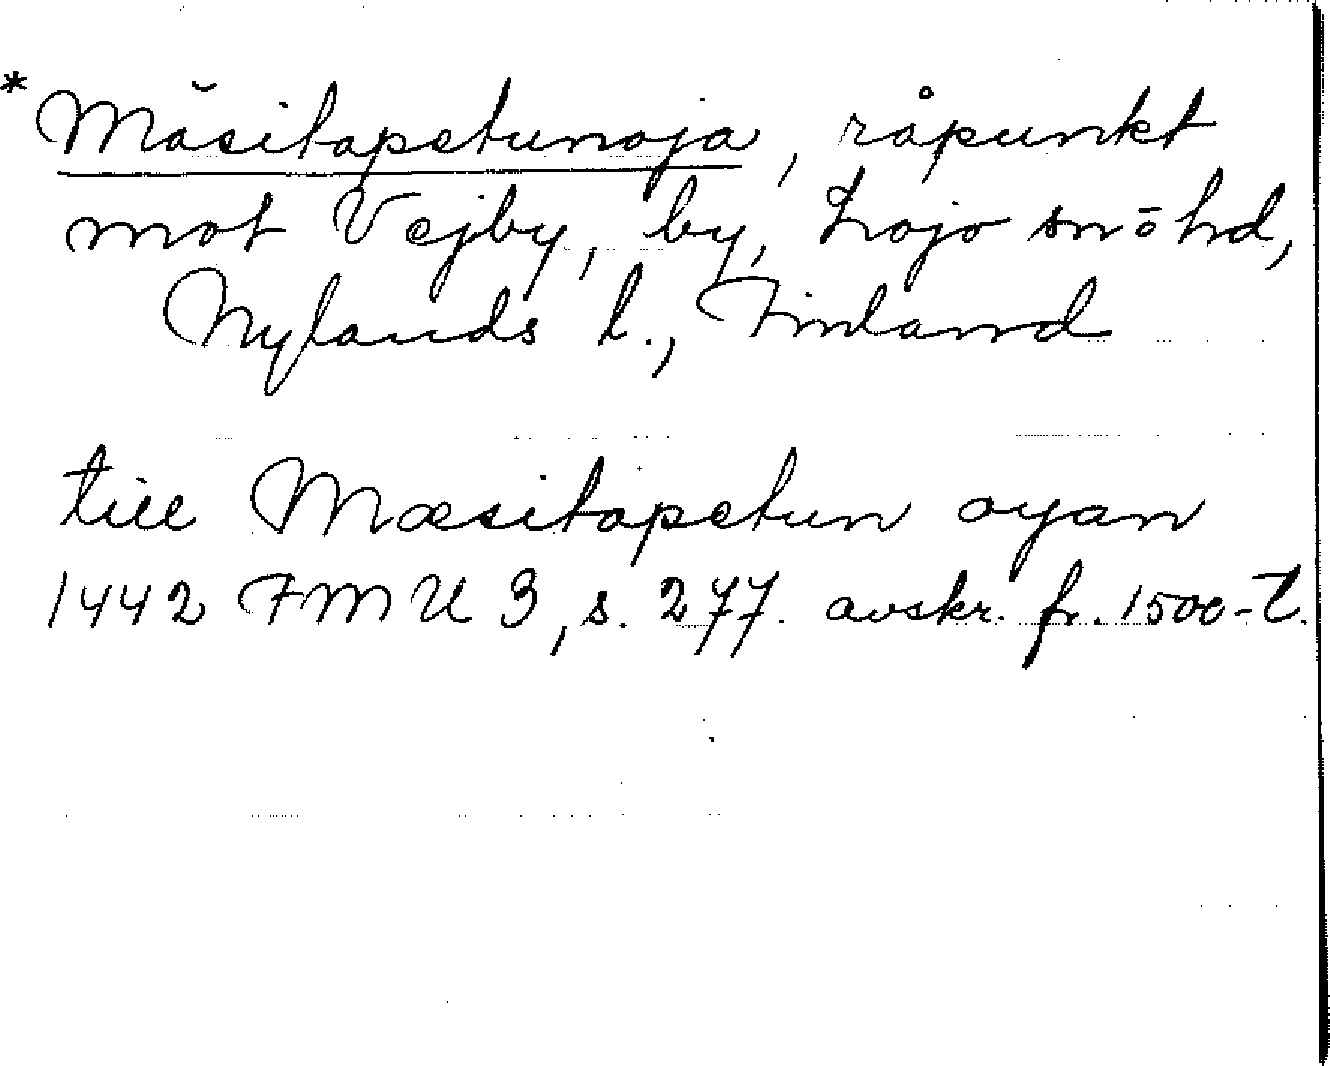 * Mäsitapetunoja, råpunkt
mot Vejby, by, Lojo sn o hd,
Nylands l., Finland
till Mæsitapetun oyan
1442 FMU 3, s. 277. avskr. fr. 1500-t.